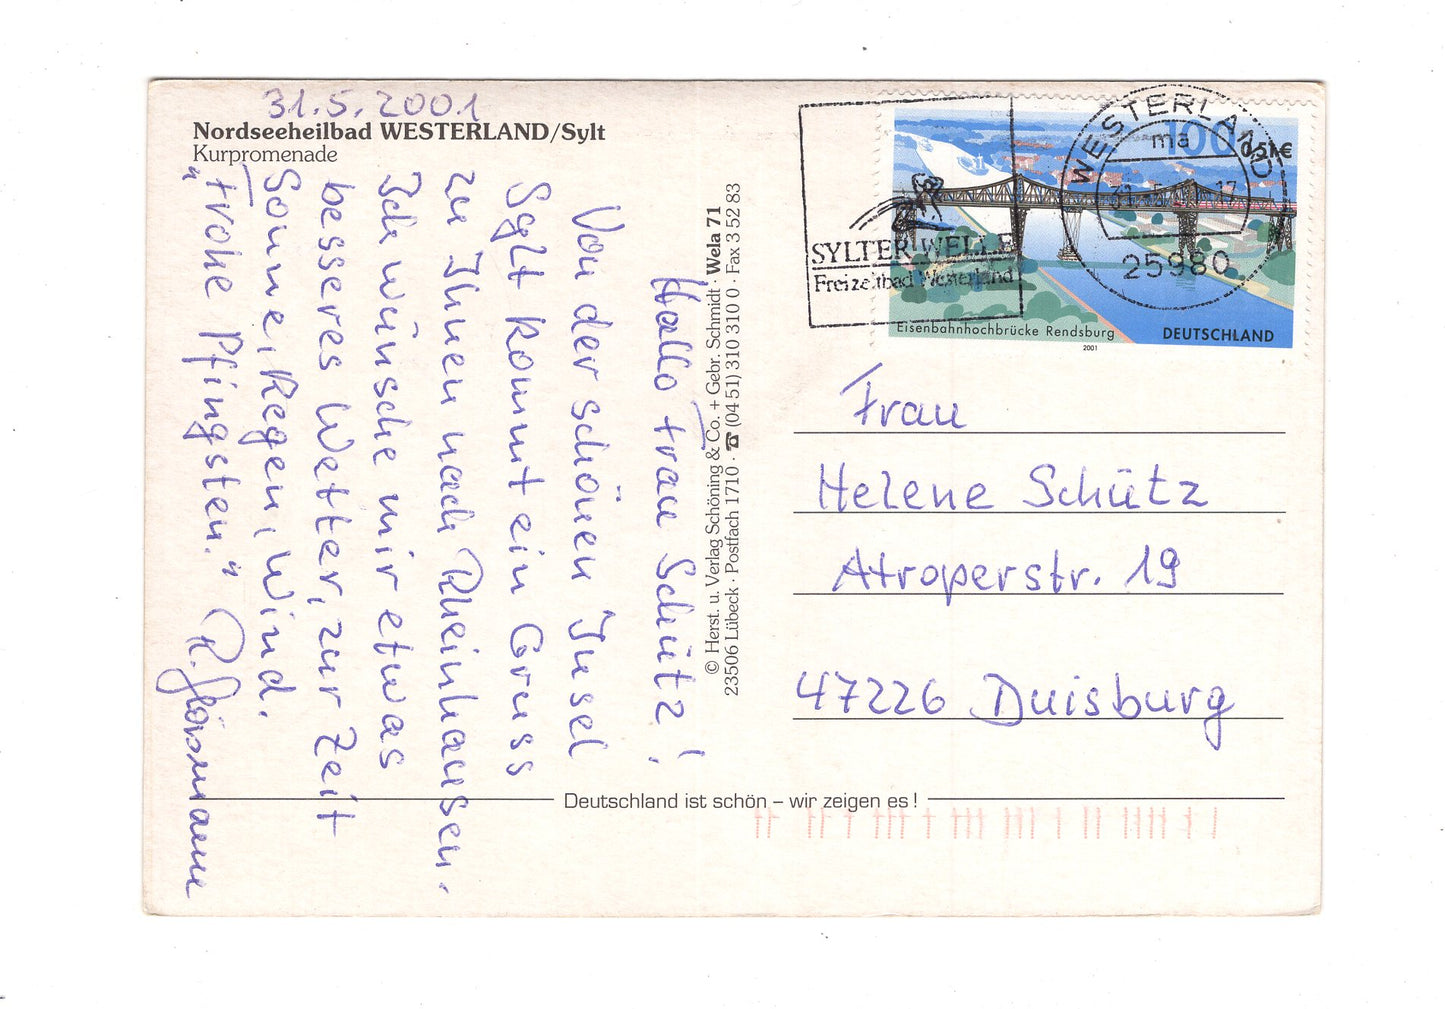 31.5.2001
Nordseeheilbad WESTERLAND/Sylt
Kurpromenade
Hallo Frau Schütz!
Von der schönen Insel
Sylt kommt ein Gruss
zu Ihnen nach Rheinhausen.
Ich wünsche mir etwas
besseres Wetter, zur Zeit
Sonne, Regen, Wind.
"Frohe Pfingsten."
© Herst. u. Verlag Schöning & Co. + Gebr. Schmidt · Wela 71
23506 Lübeck · Postfach 1710 · ☎ (04 51) 310 310 0 · Fax 3 52 83
SYLTER WELLE
Freizeitbad Westerland
WESTERLAND
ma
25980
100
0,51€
Eisenbahnhochbrücke Rendsburg
DEUTSCHLAND
2001
Frau
Helene Schütz
Atroperstr. 19
47226 Duisburg
Deutschland ist schön – wir zeigen es!